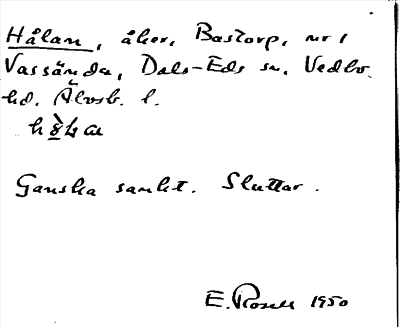 Hålan, åker, Bastorp, nr 1
Vassända, Dals-Eds sn, Vedbo
hd. Älvsb. l.
Ganska sankt. Sluttar.
E. Rosell 1950